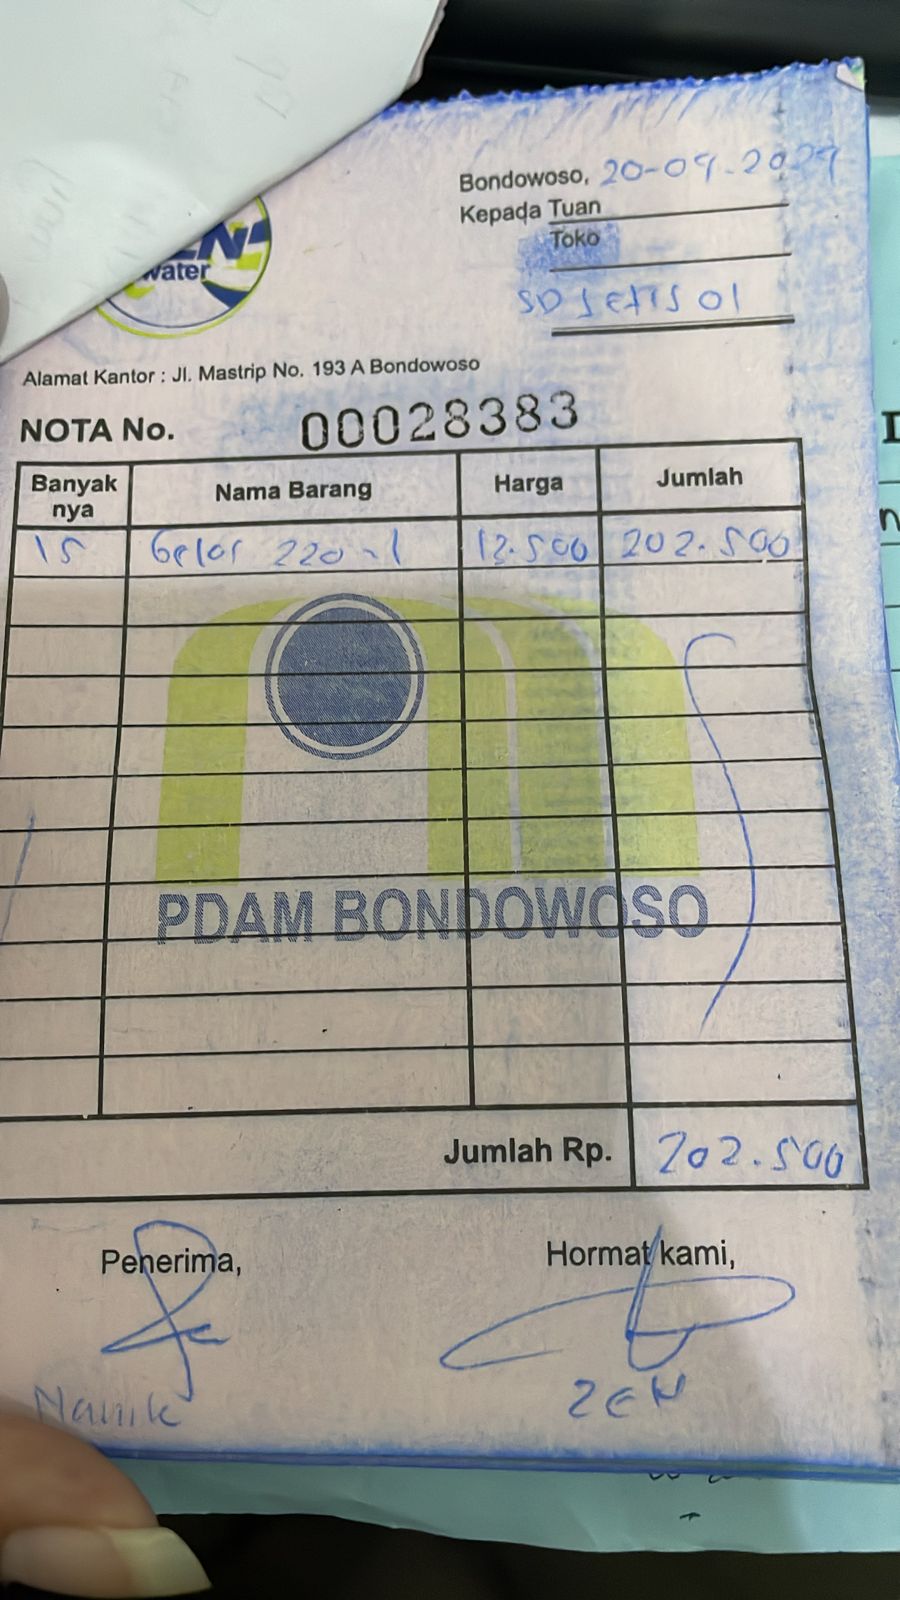 water
Bondowoso, 20-09-2024
Kepada Tuan
Toko
SD 01
Alamat Kantor : Jl. Mastrip No. 193 A Bondowoso
NOTA No. 00028383
Banyak nya Nama Barang Harga Jumlah
15 Gelas 220 ml 13.500 202.500
PDAM BONDOWOSO
Jumlah Rp. 202.500
Penerima, Hormat kami,
Nanik ZEN